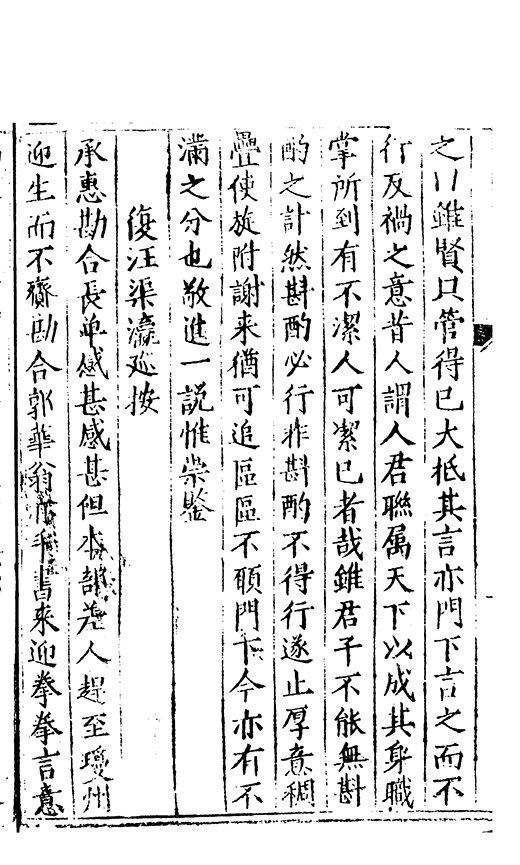 之口雖賢只管得已大抵其言亦門下言之而不
行反禍之意昔人謂人君聯属天下以成其身職
掌所到有不潔人可潔已者哉雖君子不能無斟
酌之計然斟酌必行非斟酌不得行遂止厚意稠
疊使旋附謝来猶可追區區不願門下今亦有不
滿之分也敬進一説惟崇鑒
復汪渠瀛廵按
承惠勘合長单感甚感甚但本部差人趕至瓊州
迎生而不賫勘合郭華翁手書来迎拳拳言意